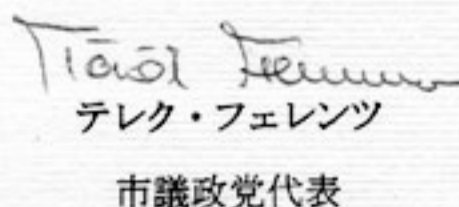 テレク・フェレンツ
市議政党代表